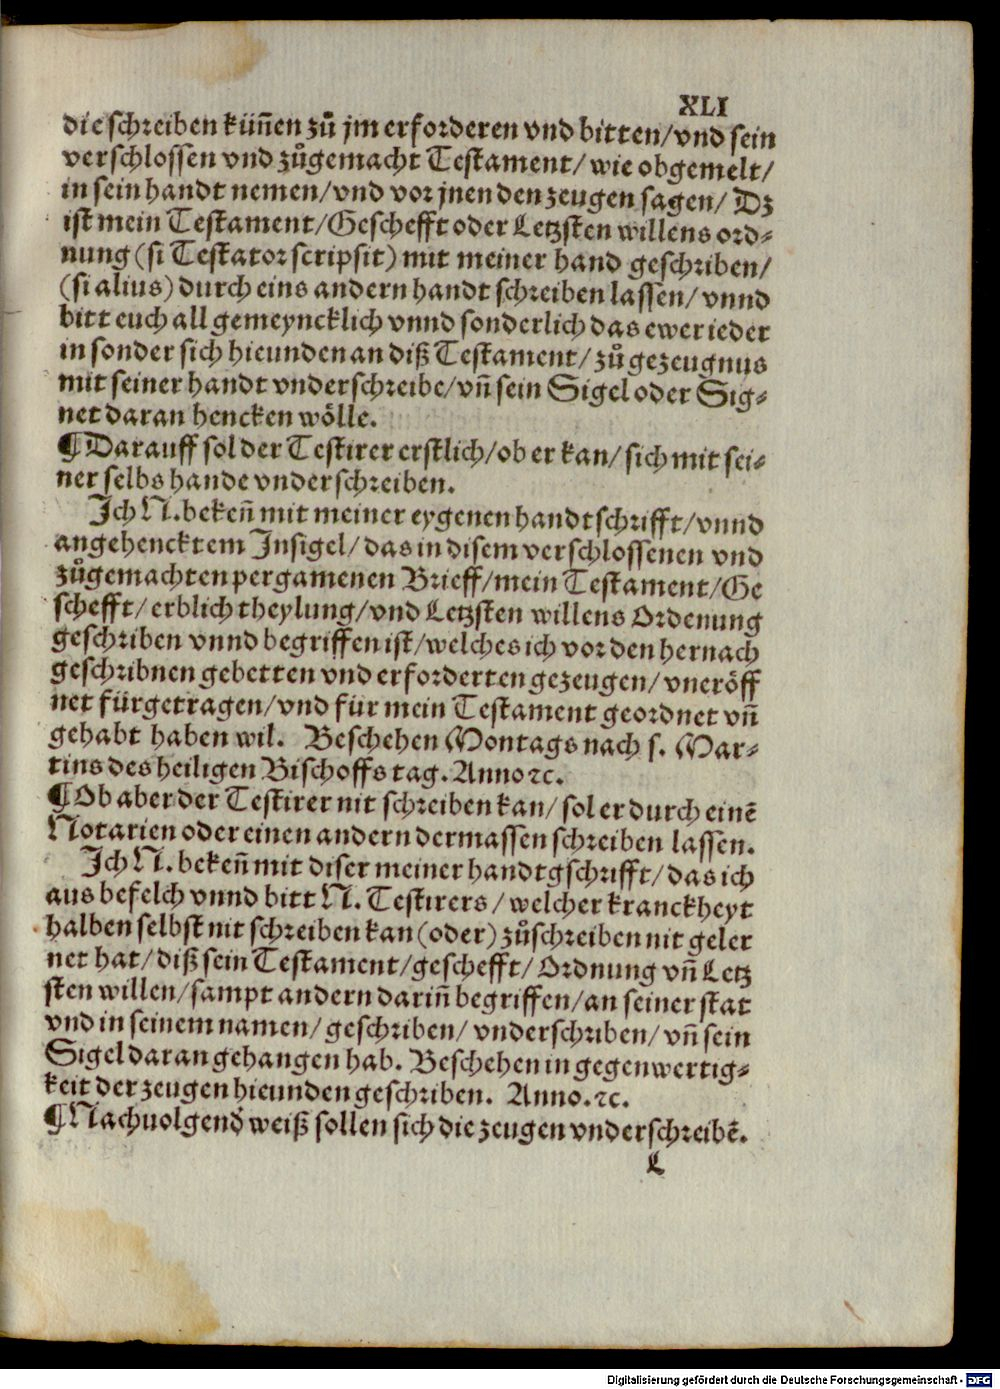 XLI
die schreiben küñen zů jm erforderen vnd bitten/vnd sein
verschlossen vnd zůgemacht Testament/ wie obgemelt/
in sein handt nemen/vnd vor jnen den zeugen sagen/ Dz
ist mein Testament/Geschefft oder Letzsten willens ord-
nung (si Testator scripsit) mit meiner hand geschriben/
(si alius) durch eins andern handt schreiben lassen/ vnnd
bitt euch all gemeyncklich vnnd sonderlich das ewer ieder
in sonder sich hieunden an diß Testament/ zů gezeugnus
mit seiner handt vnderschreibe/vñ sein Sigel oder Sig-
net daran hencken wölle.
¶Darauff sol der Testirer erstlich/ob er kan/ sich mit sei-
ner selbs hande vnderschreiben.
Ich N. bekeñ mit meiner eygenen handtschrifft/vnnd
angehencktem Insigel/ das in disem verschlossenen vnd
zůgemachten pergamenen Brieff/mein Testament/Ge
schefft/ erblich theylung/vnd Letzsten willens Ordenung
geschriben vnnd begriffen ist/welches ich vor den hernach
geschribnen gebetten vnd erforderten gezeugen/ vneröff
net fürgetragen/vnd für mein Testament geordnet vñ
gehabt haben wil. Beschehen Montags nach s. Mar-
tins des heiligen Bischoffs tag. Anno ⁊c.
¶Ob aber der Testirer nit schreiben kan/ sol er durch einē
Notarien oder einen andern dermassen schreiben lassen.
Ich N. bekeñ mit diser meiner handtgschrifft/ das ich
aus befelch vnnd bitt N. Testirers/ welcher kranckheyt
halben selbst nit schreiben kan (oder) zůschreiben nit geler
net hat/ diß sein Testament/geschefft/ Ordnung vñ Letz
sten willen/sampt andern dariñ begriffen/an seiner stat
vnd in seinem namen/ geschriben/ vnderschriben/ vñ sein
Sigel daran gehangen hab. Beschehen in gegenwertig-
keit der zeugen hieunden geschriben. Anno. ⁊c.
¶Nachuolgend' weiß sollen sich die zeugen vnderschreibē.
L
Digitalisierung gefördert durch die Deutsche Forschungsgemeinschaft - DFG